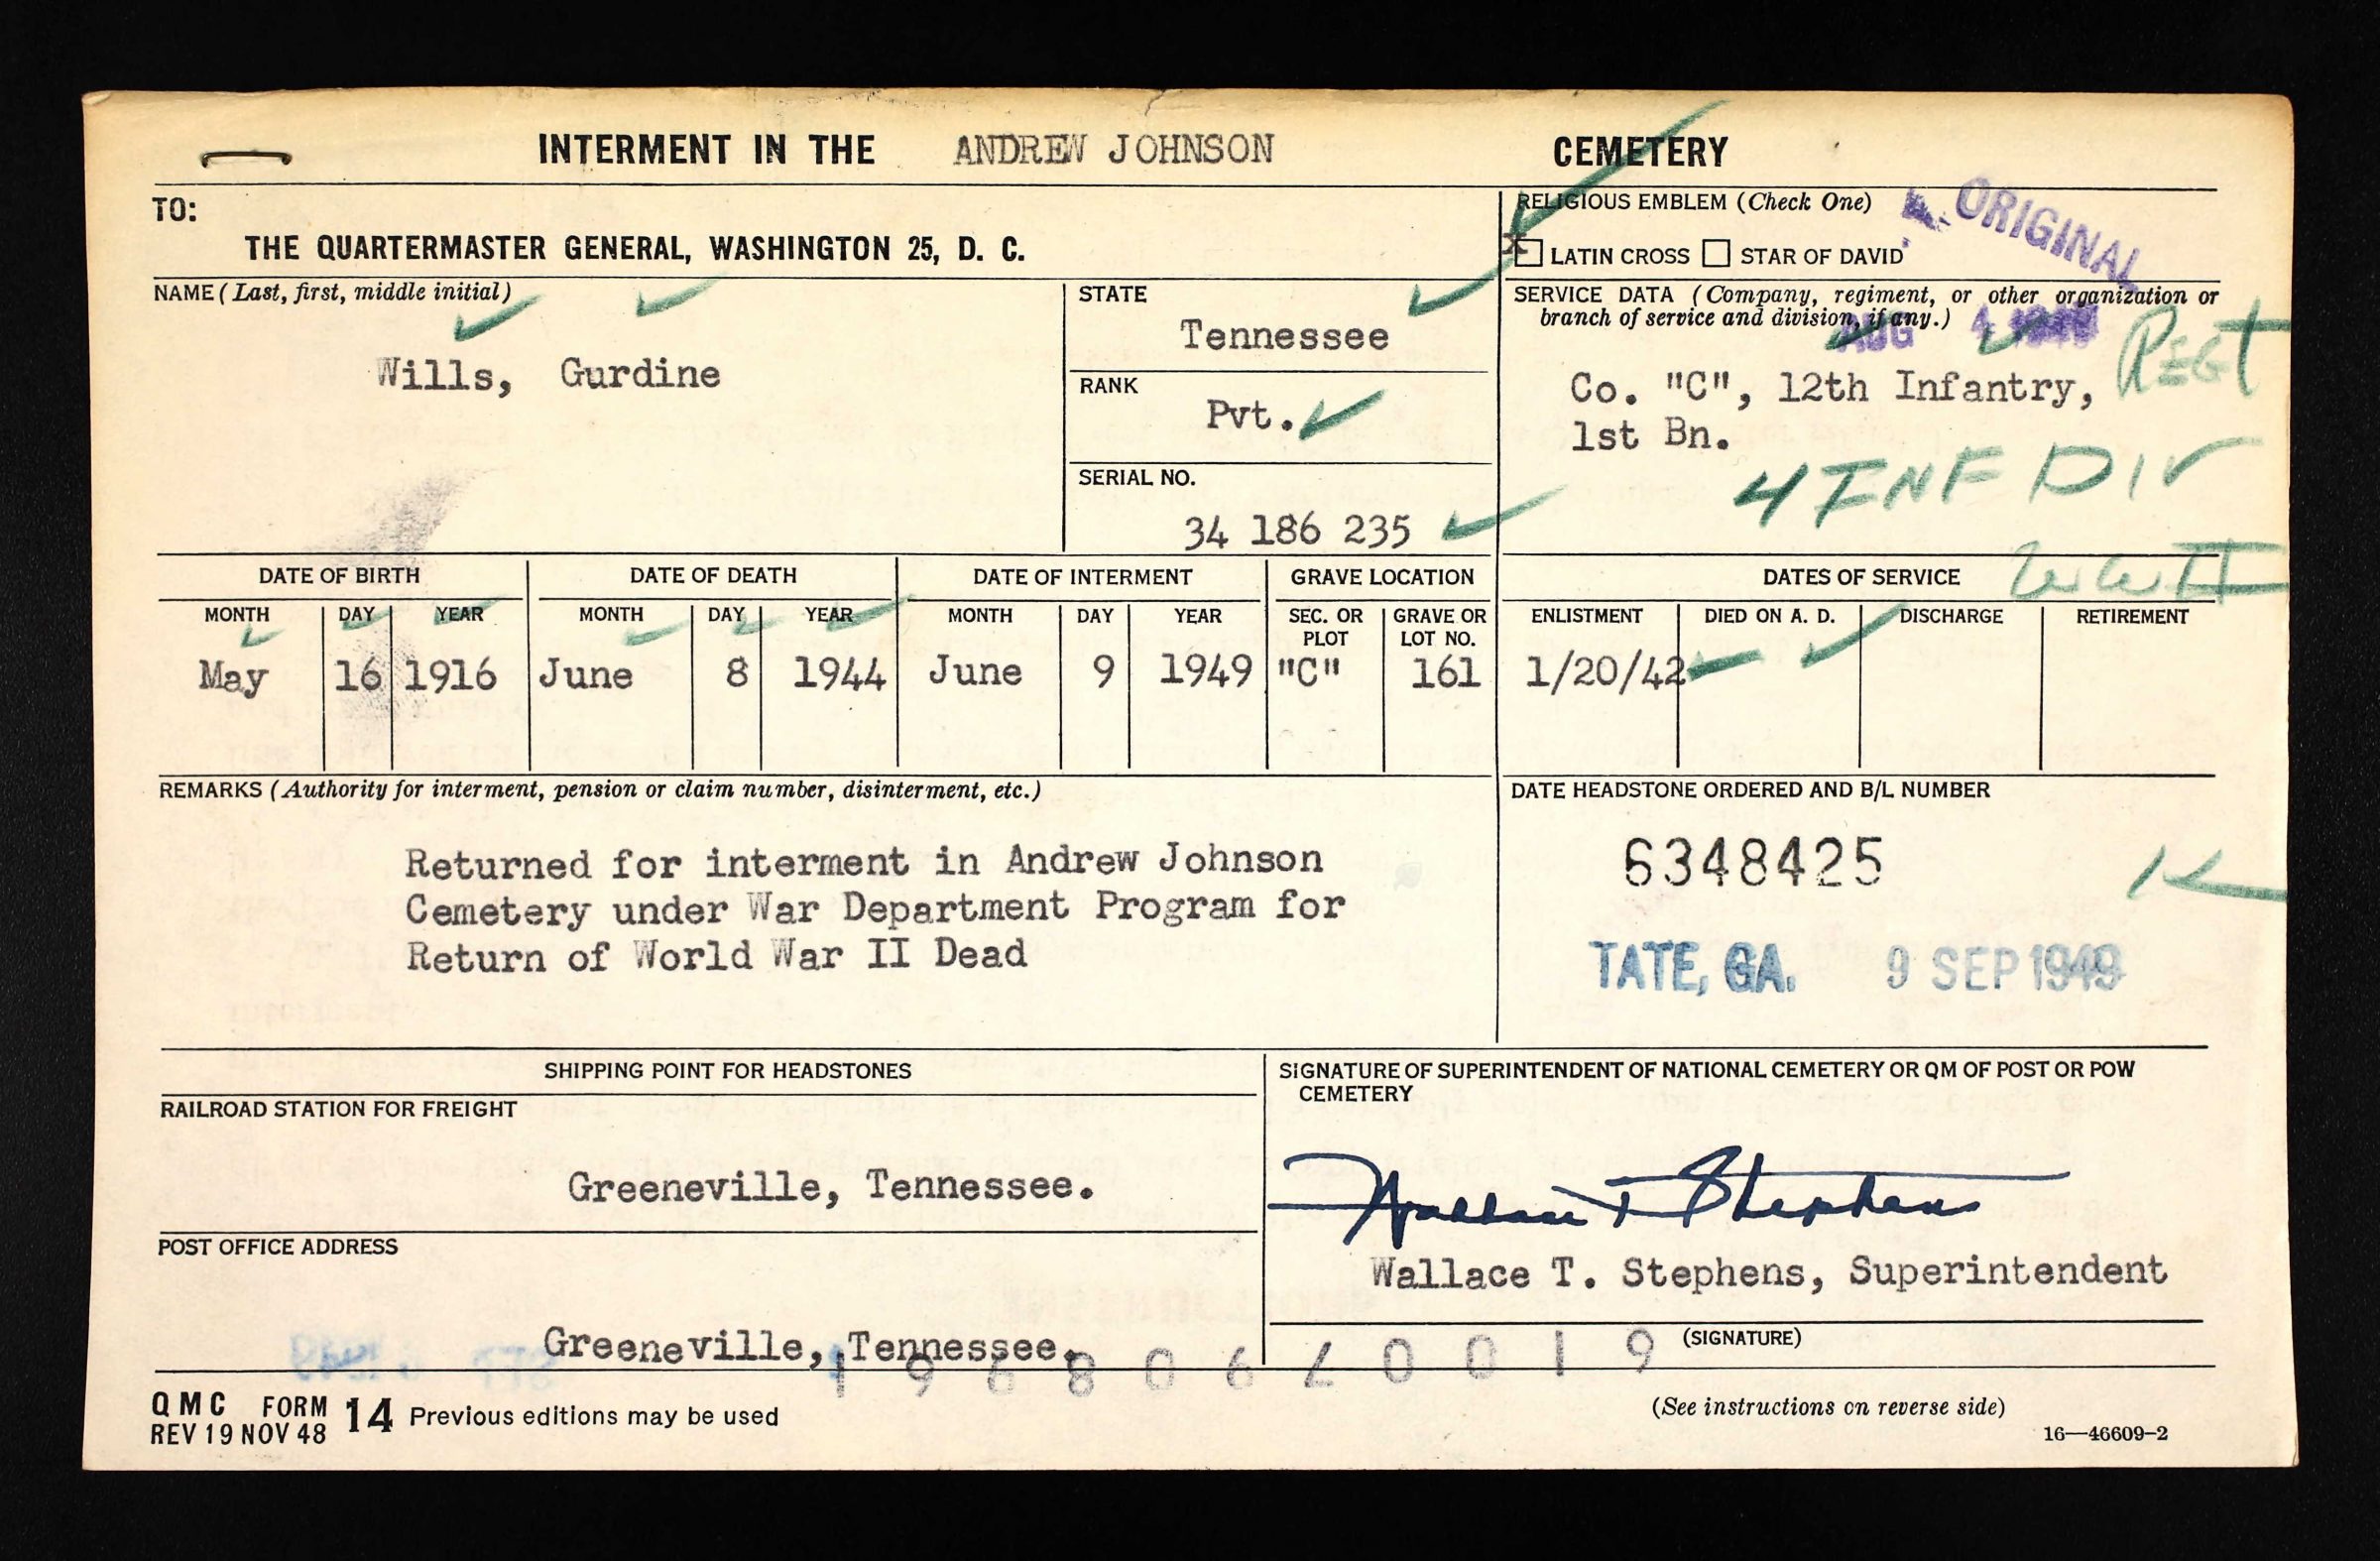 INTERMENT IN THE ANDREW JOHNSON CEMETERY
TO:
THE QUARTERMASTER GENERAL, WASHINGTON 25, D. C.
RELIGIOUS EMBLEM (Check One)
x LATIN CROSS STAR OF DAVID
ORIGINAL
NAME (Last, first, middle initial)
Wills, Gurdine
STATE
Tennessee
RANK
Pvt.
SERIAL NO.
34 186 235
SERVICE DATA (Company, regiment, or other organization or
branch of service and division, if any.)
AUG 4
Co. "C", 12th Infantry, REGT
1st Bn.
4 INF DIV
DATE OF BIRTH DATE OF DEATH DATE OF INTERMENT GRAVE LOCATION DATES OF SERVICE WWII
MONTH DAY YEAR MONTH DAY YEAR MONTH DAY YEAR SEC. OR PLOT GRAVE OR LOT NO. ENLISTMENT DIED ON A. D. DISCHARGE RETIREMENT
May 16 1916 June 8 1944 June 9 1949 "C" 161 1/20/42
REMARKS (Authority for interment, pension or claim number, disinterment, etc.)
Returned for interment in Andrew Johnson
Cemetery under War Department Program for
Return of World War II Dead
DATE HEADSTONE ORDERED AND B/L NUMBER
6348425
TATE, GA. 9 SEP 1949
SHIPPING POINT FOR HEADSTONES
RAILROAD STATION FOR FREIGHT
Greeneville, Tennessee.
POST OFFICE ADDRESS
Greeneville, Tennessee.
SIGNATURE OF SUPERINTENDENT OF NATIONAL CEMETERY OR QM OF POST OR POW
CEMETERY
Wallace T Stephens
Wallace T. Stephens, Superintendent
(SIGNATURE)
QMC FORM 14 Previous editions may be used
REV 19 NOV 48
(See instructions on reverse side)
16—46609-2